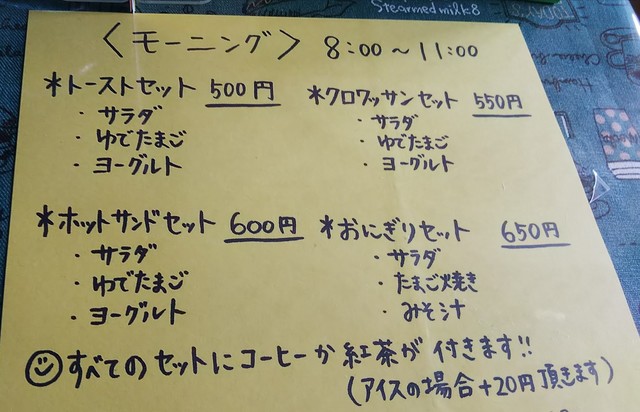 Stearmedmilk8
〈モーニング〉 8:00～11:00
＊トーストセット 500円
・サラダ
・ゆでたまご
・ヨーグルト
＊クロワッサンセット 550円
・サラダ
・ゆでたまご
・ヨーグルト
＊ホットサンドセット 600円
・サラダ
・ゆでたまご
・ヨーグルト
＊おにぎりセット 650円
・サラダ
・たまご焼き
・みそ汁
すべてのセットにコーヒーか紅茶が付きます!!
(アイスの場合+20円頂きます)